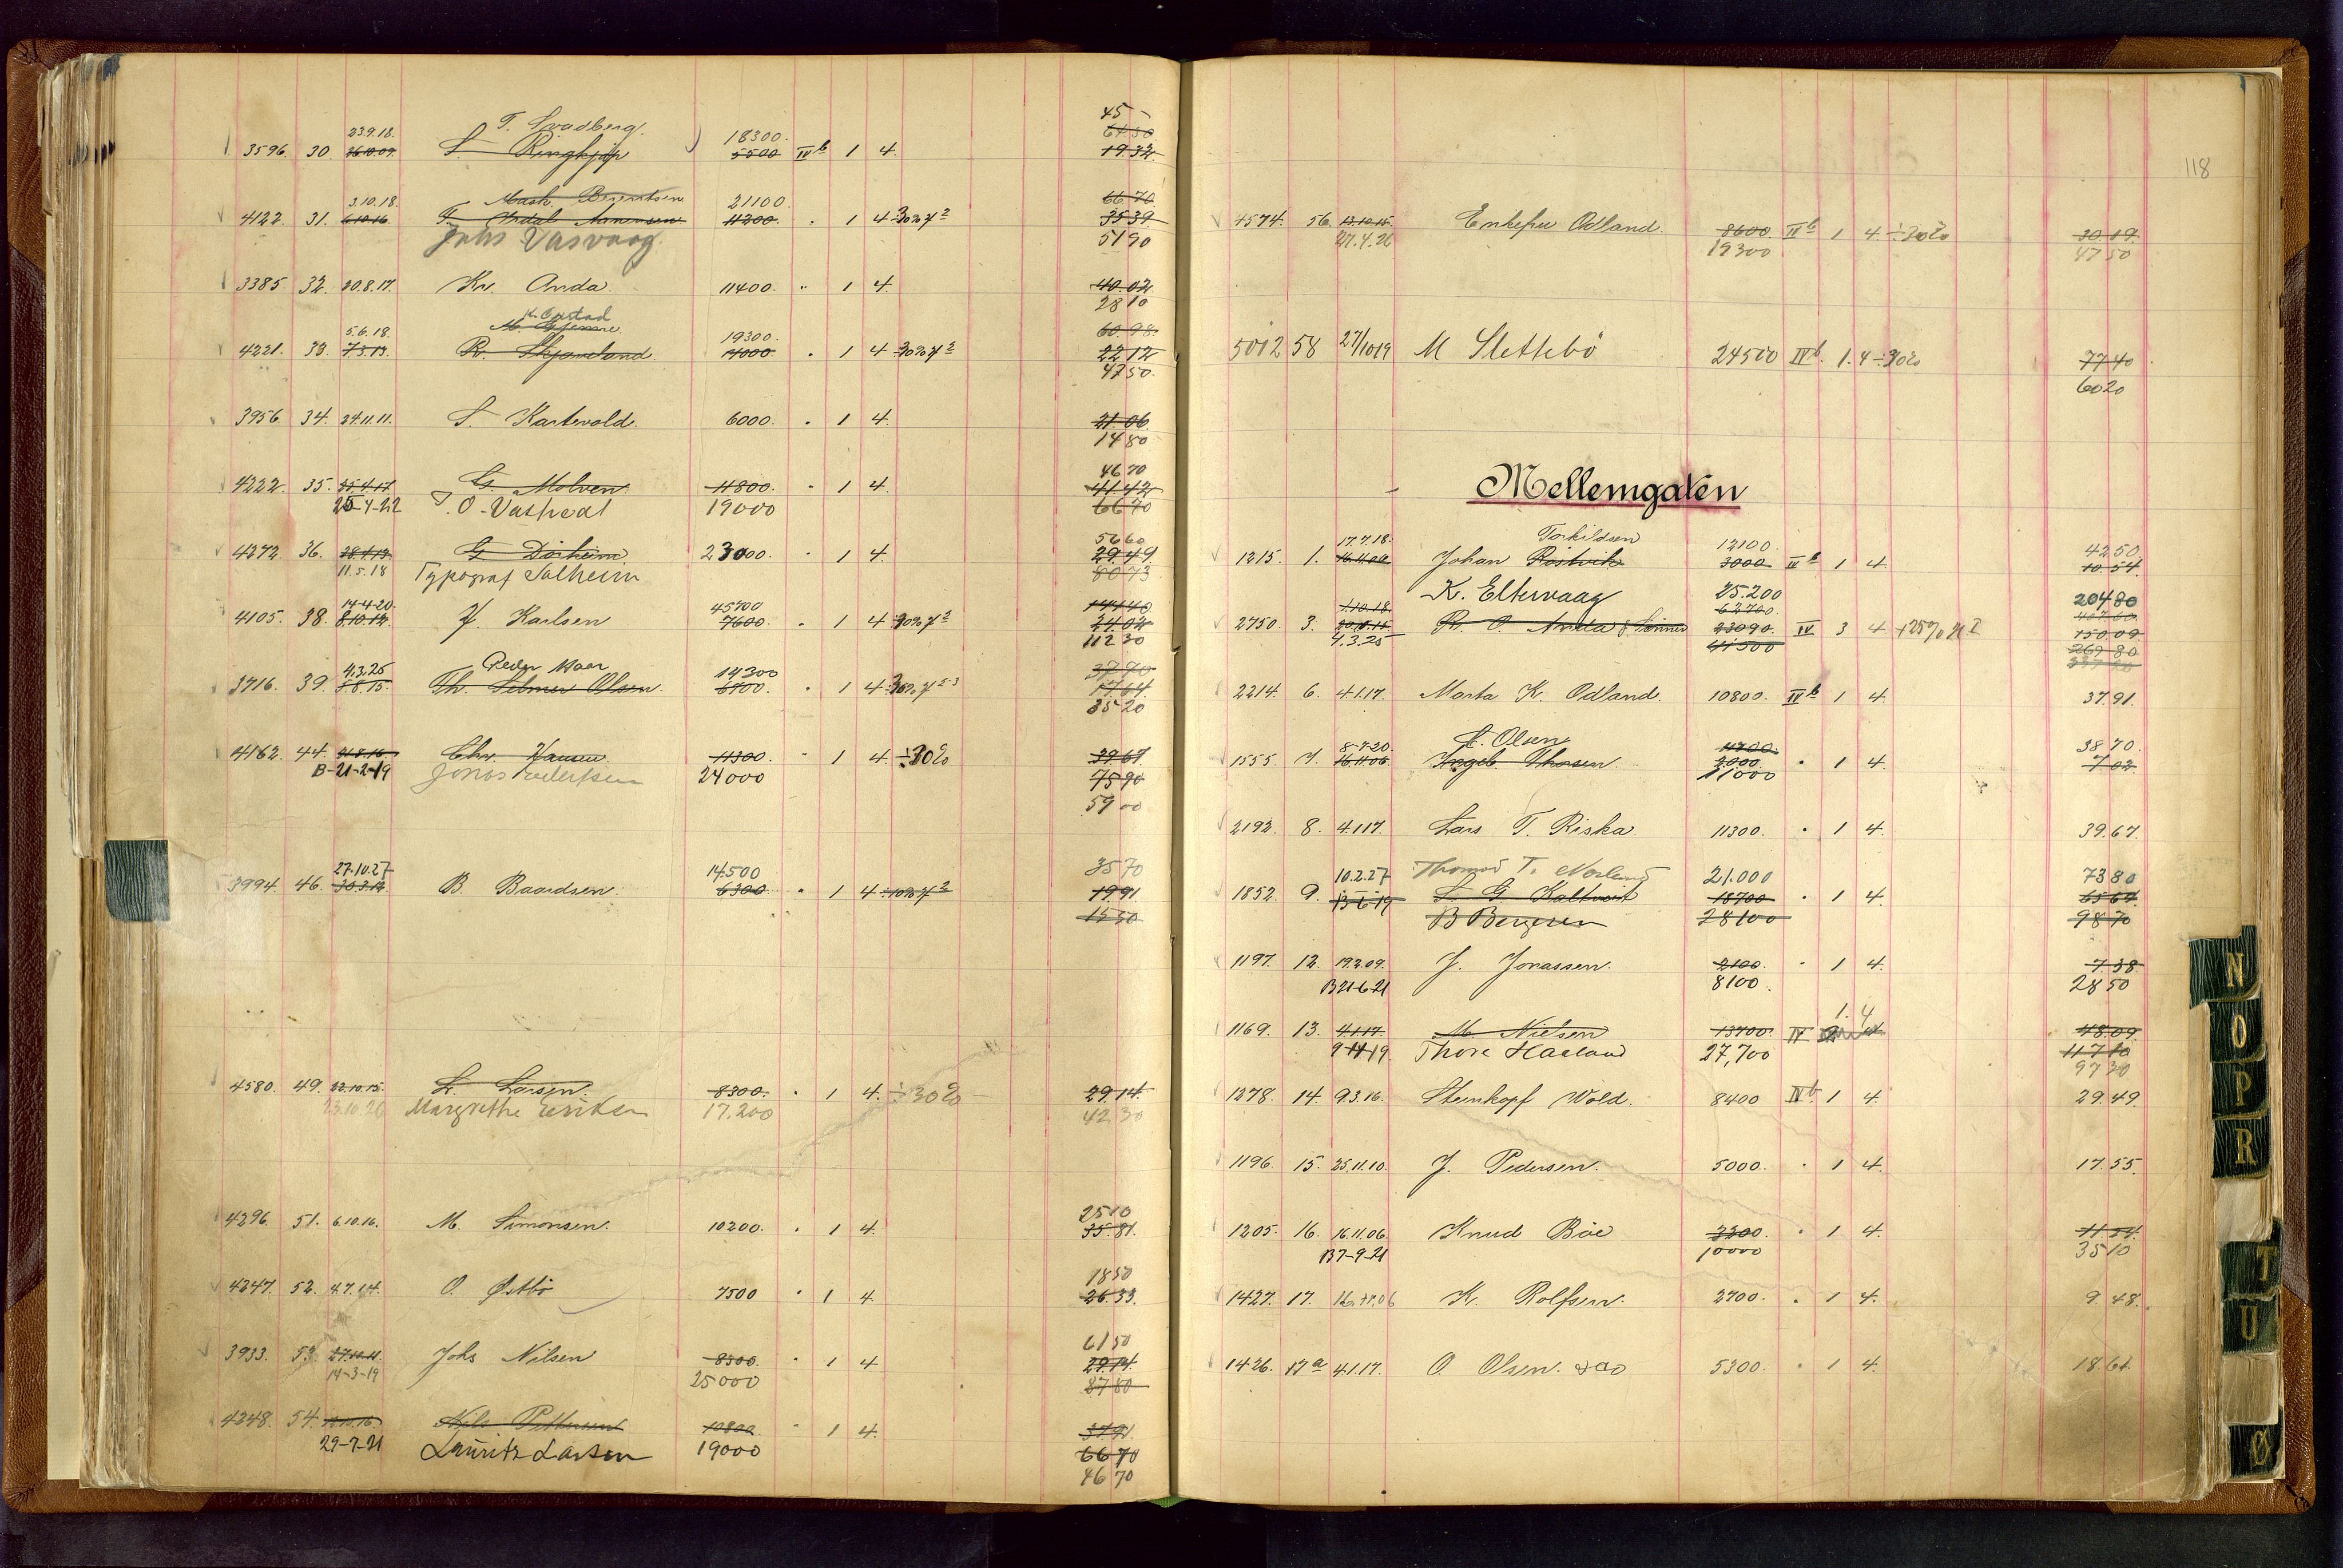 T. Svadberg. 45 -
23.9.18. 18300. 67 50
3596. 30 26.10.09. S. Ringkjøp 5500 IVb 1 4. 19.32
3.10.18. Mash. Berentsen 21100. 66 70
4122. 31. 6.10.16 T. Ardal Aanensen 11200. " 1 4 ÷30% 35 39
Johs Vasvaag. 51 90
3385. 32. 20.8.17. Kr. Anda 11400. " 1 4. 40.02
28 10
5.6.18. M. Gjemre 19300. 60.98.
4221. 33. 7.3.13. R. Skjæveland 14000 " 1 4 ÷30% 22 12
47 50.
3956. 34. 24.11.11. S. Kartevold. 6000. " 1 4. 21.06
14 80
46 70
4222. 35. 25.4.17 G. Molven 11800. " 1 4. 41 42
25-4-22 O. Vasheal 19000 66 70
56 60
4272. 36. 28.4.13. G. Dirheim 23000. " 1 4. 29.49
11.5.18 Typograf Salheim 80 73
14-4-20. 45700 144 40
4105. 38. 8.10.12. J. Karlsen 7600. " 1 4 ÷30% 24 02
112 30
4.3.25 Peder Maar 14300 37 70
3716. 39. 5.8.15. Th. Selmer Olsen. 6800. " 1 4 ÷30% 17 64
35 20
4162. 44. 21.8.16 Chr. Hansen 11300 " 1 4. ÷30% 39 67
B-21-2-19 Jonas 24000 75 90
59 00
27.10.27 14500 35 70
3994. 46. 30.3.12 B. Baardsen. 6300. " 1 4 ÷10% 19.91
15 50
4580. 49. 22.10.15. L. Larsen. 8300. " 1 4. ÷30% 29.14
23.10.26 Margrethe Eriksen 17,200 42 30
25 10
4296. 51. 6.10.16. M. Simonsen. 10200. " 1 4. 35.81.
18 50
4247. 52. 4.7.14. O. Østbö 7500 " 1 4. 26.33.
61 50
3933. 53. 27.10.11. Johs Nilsen 8300. " 1 4 29.14
14-3-19 25000 87 80
4248. 54. 12.10.16 Nils Pettersen 10800 " 1 4. 37.91.
29-7-21 Lauritz Larsen 19000 66 70
46 70
118
4574. 56. 13.10.15. Enkefru Odland. 8600. IVb 1 4 ÷30% 30.19.
27.4.26 19300 47 50
5012 58 27/10 19 M Slettebö 24500 IVb. 1. 4 ÷30% 77 40
60 20
Mellemgaten
17.7.18. Torkildsen 12100.
1215. 1. 16.11.06 Johan Rostvik 3000 IVb 1 4 42 50
10.54.
K. Eltervaag 25.200 204 80
1.10.18. 62700.
2750. 3. 20.8.15 R. O. Anda & Sønner 23090. IV 3 4 +25% 150.09
4.3.25 41500 269 80
2214. 6. 4.1.17. Marta K. Odland. 10800. IVb 1 4. 37.91.
8-7-20. L. Olsen 11700. 38 70.
1555. 7. 16.11.06 Ingeb. Thorsen. 2000. " 1 4. 7 02
11000
2192. 8. 4.1.17. Lars T. Riska 11300. " 1 4. 39.67.
10.2.27 Thomas T. Norland 21.000 73 80
1852. 9. B-6-19 L. G. Kaltveit 18700 " 1 4. 65 64.
B Bergesen 28100 98 70
1197. 12. 19.2.09. J. Jonassen. 2100. " 1 4. 7.38
B 21-6-21 8100. 28 50
1. 4
1169. 13. 4.1.17. M. Nielsen 13700. IV 48.09
9-11-19. Thore Haaland 27,700 117 10
97 30
1278. 14. 9.3.16. Steinkopf Wold. 8400 IVb. 1 4. 29.49.
1196. 15. 25.11.10. J. Pedersen. 5000. " 1 4. 17.55.
1205. 16. 16.11.06. Knud Böe 3300. " 1 4. 11.54.
B 7-9-21 10000 35 10
1427. 17. 16.11.06 K. Rolfsen. 2700. " 1 4. 9.48.
1426. 17a 4.1.17. O. Olsen. & Co 5300. " 1 4. 18.61.
N
O
P
R
T
U
Ø